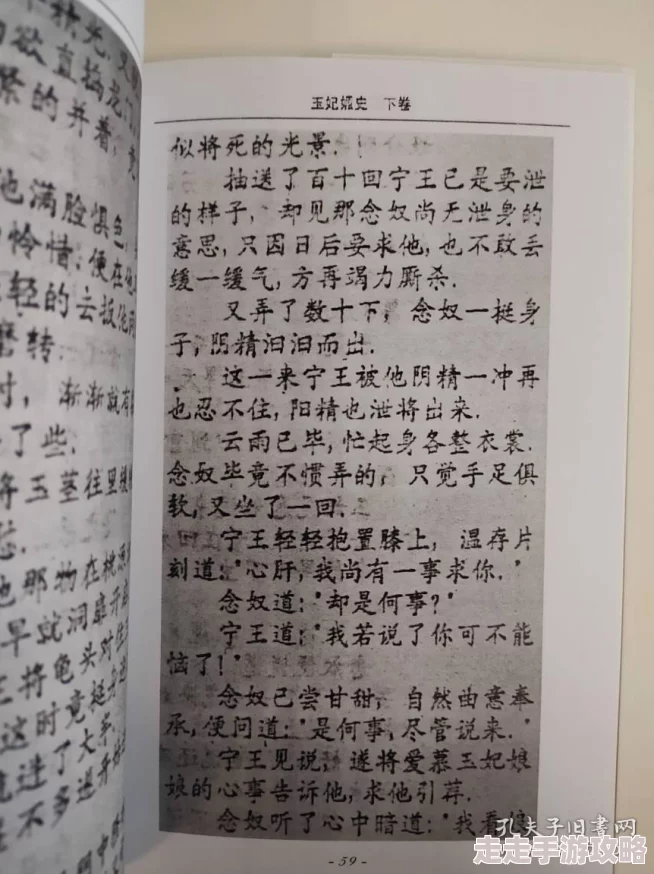 秋光,又
欲直捣龙
紧的并着,竟
他满脸惧色,
怜惜;便在他
轻的云拔他
磨转.
时,渐渐就有
了些.
将玉茎往里
他那物在桃源
早就洞靡开
王将龟头对住
这时竟挺身
进了大半
不多进身
玉妃媚史 下卷
似将死的光景.
抽送了百十回宁王已是要泄
的样子,却见那念奴尚无泄身的
意思,只因日后要求他,也不敢丢
缓一缓气,方再竭力厮杀.
又弄了数十下,念奴一挺身
子,阴精汩汩而出.
这一来宁王被他阴精一冲再
也忍不住,阳精也泄将出来.
云雨已毕,忙起身各整衣裳.
念奴毕竟不惯弄的,只觉手足俱
软,又坐了一回.
宁王轻轻抱置膝上,温存片
刻道:"心肝,我尚有一事求你."
念奴道:"却是何事?"
宁王道:"我若说了你可不能
恼了!"
念奴已尝甘甜,自然曲意奉
承,便问道:"是何事,尽管说来."
宁王见说,遂将爱慕玉妃娘
娘的心事告诉他,求他引荐.
念奴听了心中暗道:"我看娘
- 59 -
孔夫子旧书网
走走手游攻略